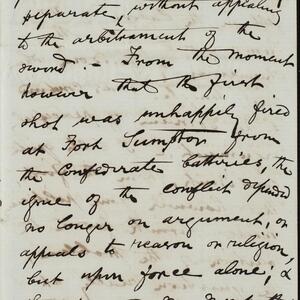 separate, without appealing
to the arbitrament of the
sword :- From the moment
however that the first
shot was unhappily fired
at Fort Sumpter from
the Confederate batteries, the
issue of the conflict depended
no longer on argument, or
appeals to reason or religion,
but upon force alone; &